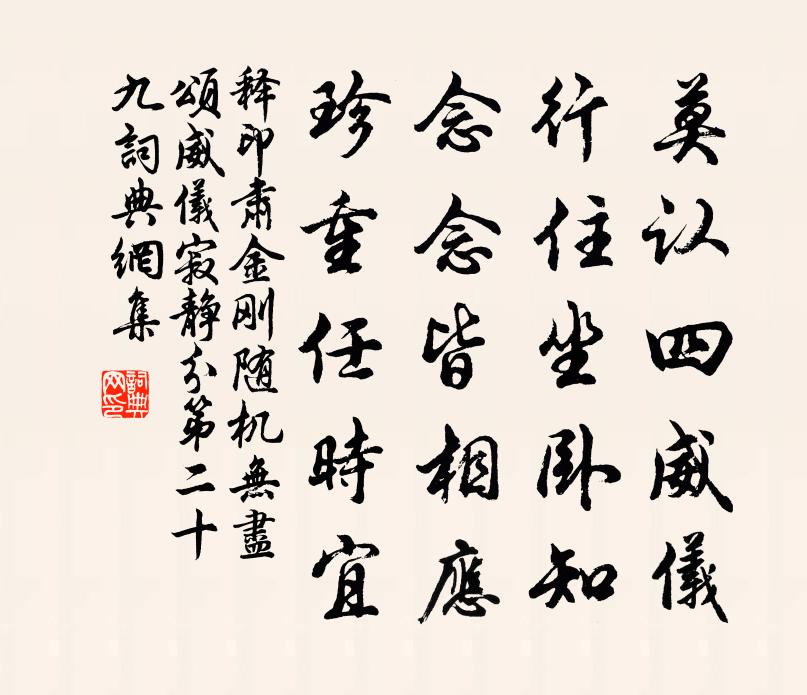 莫认四威儀
行住坐卧知
念念皆相應
珍重任時宜
释印肃金刚随机無盡
頌威儀寂静分第二十
九詞典網集
詞典
网印